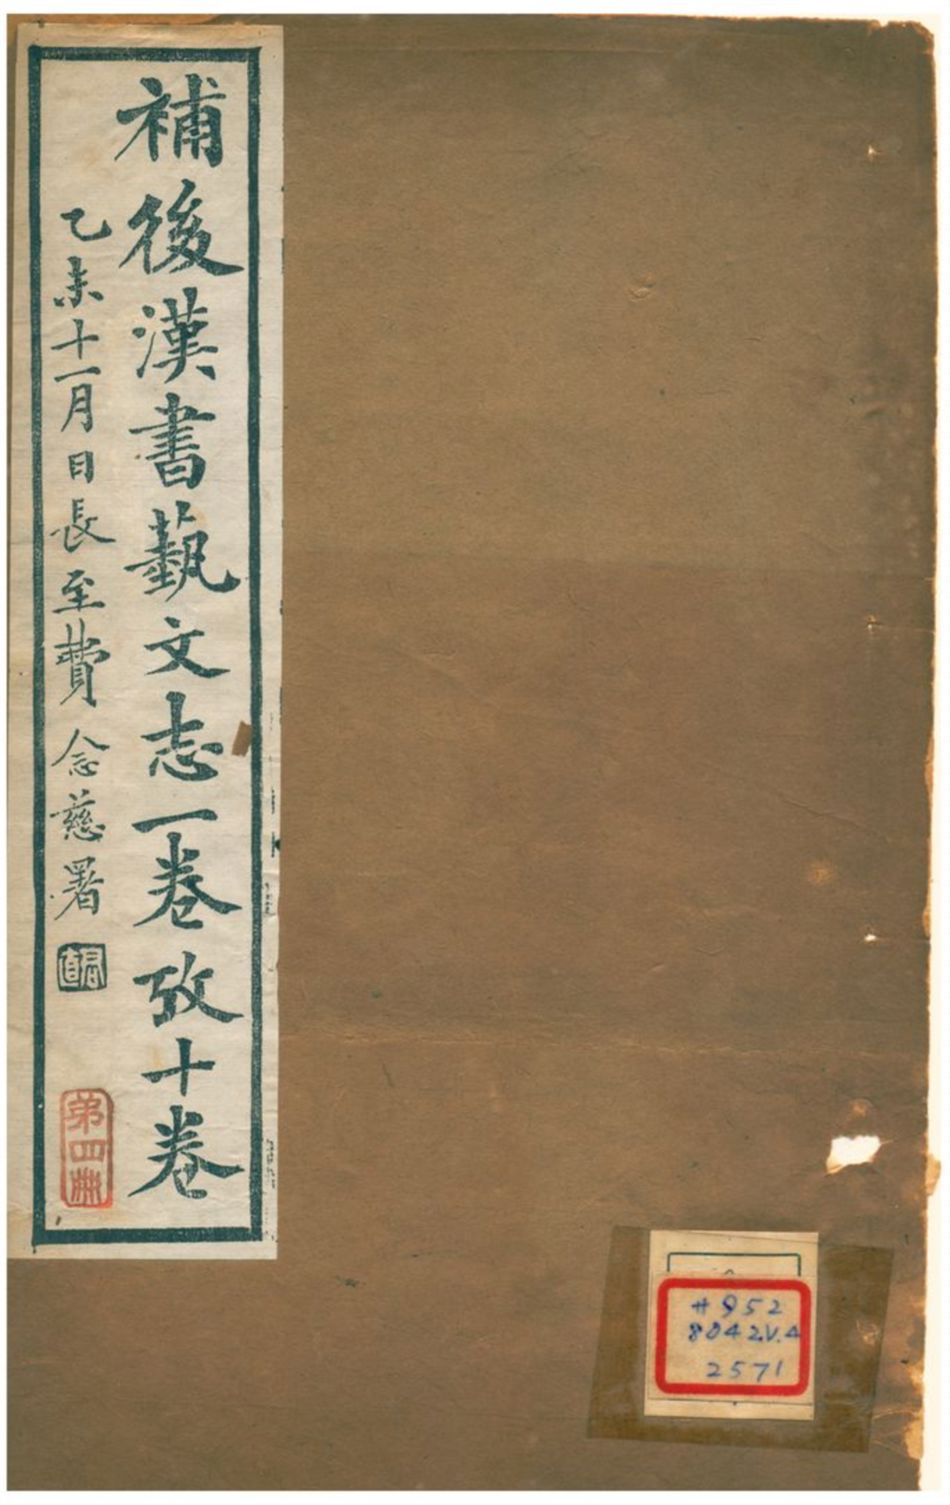 補後漢書藝文志一卷攷十卷
乙未十一月日長至費念慈署
第四冊
# 952
8042 V.4
2571